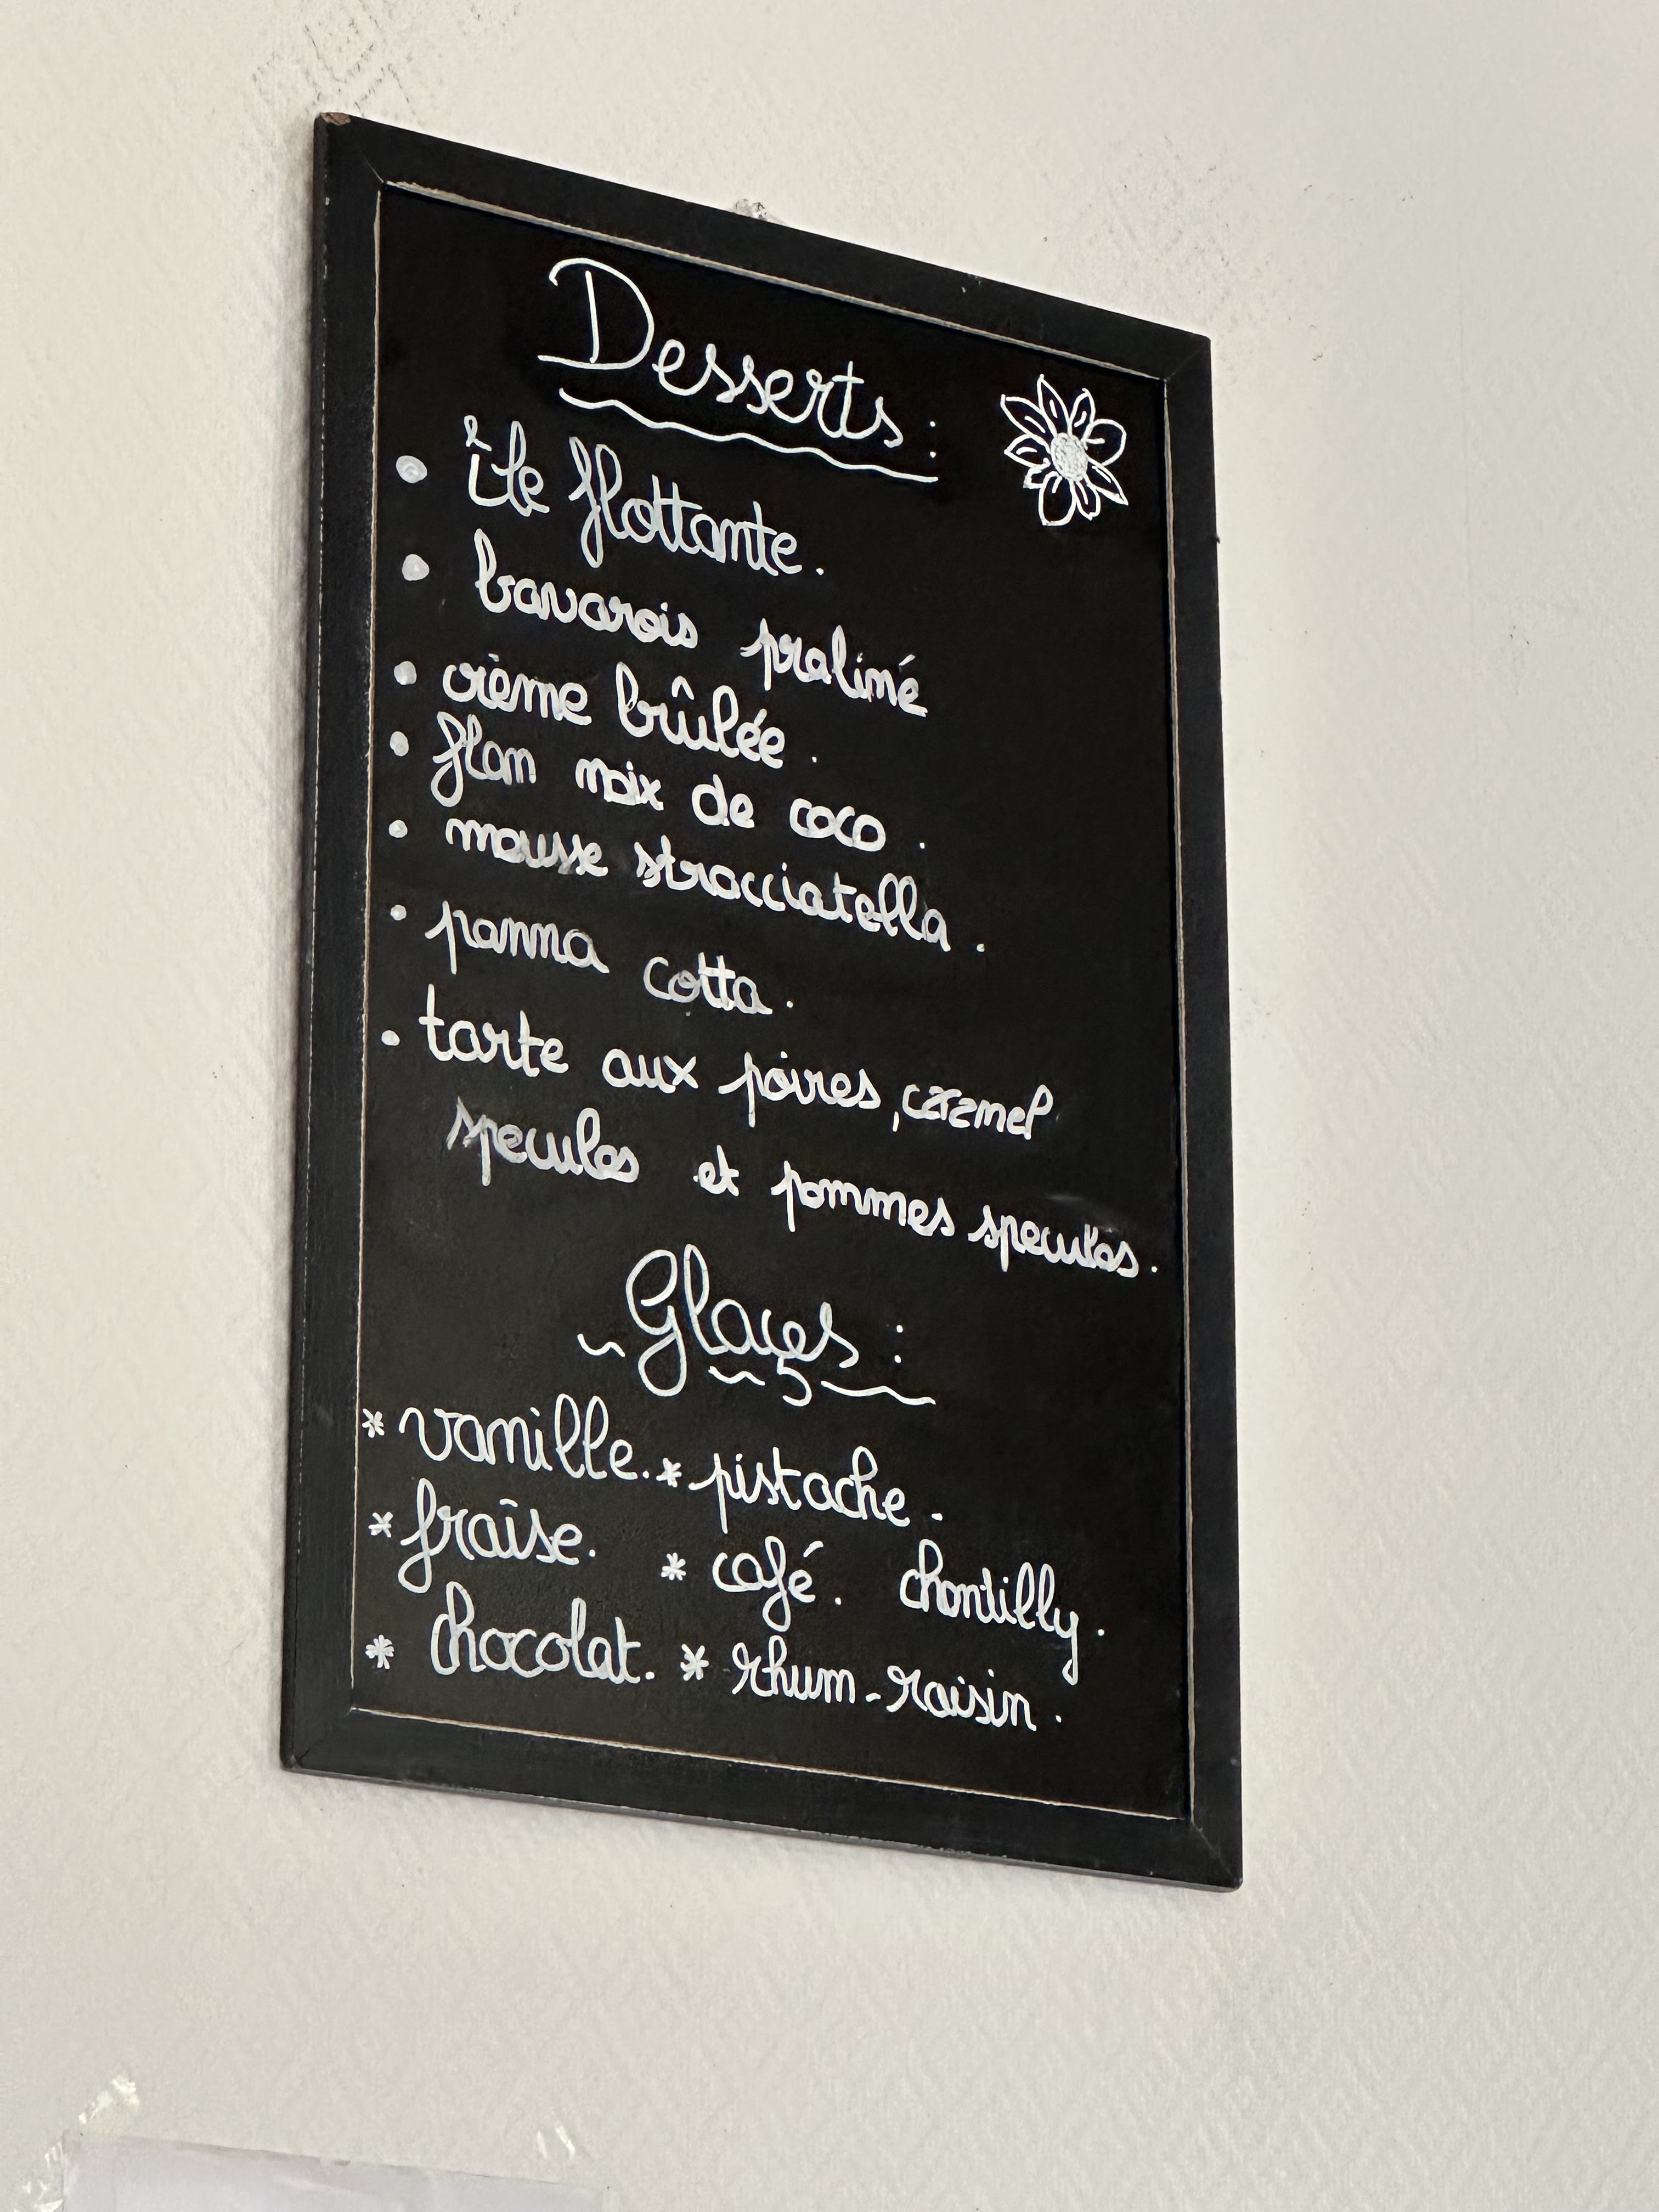 Desserts :
• île flottante.
• bavarois praliné
• crème brûlée.
• flan noix de coco.
• mousse stracciatella.
• panna cotta.
• tarte aux poires, caramel
speculos et pommes speculos.
Glaçes :
* vanille. * pistache.
* fraise. * café. chantilly.
* chocolat. * rhum-raisin.